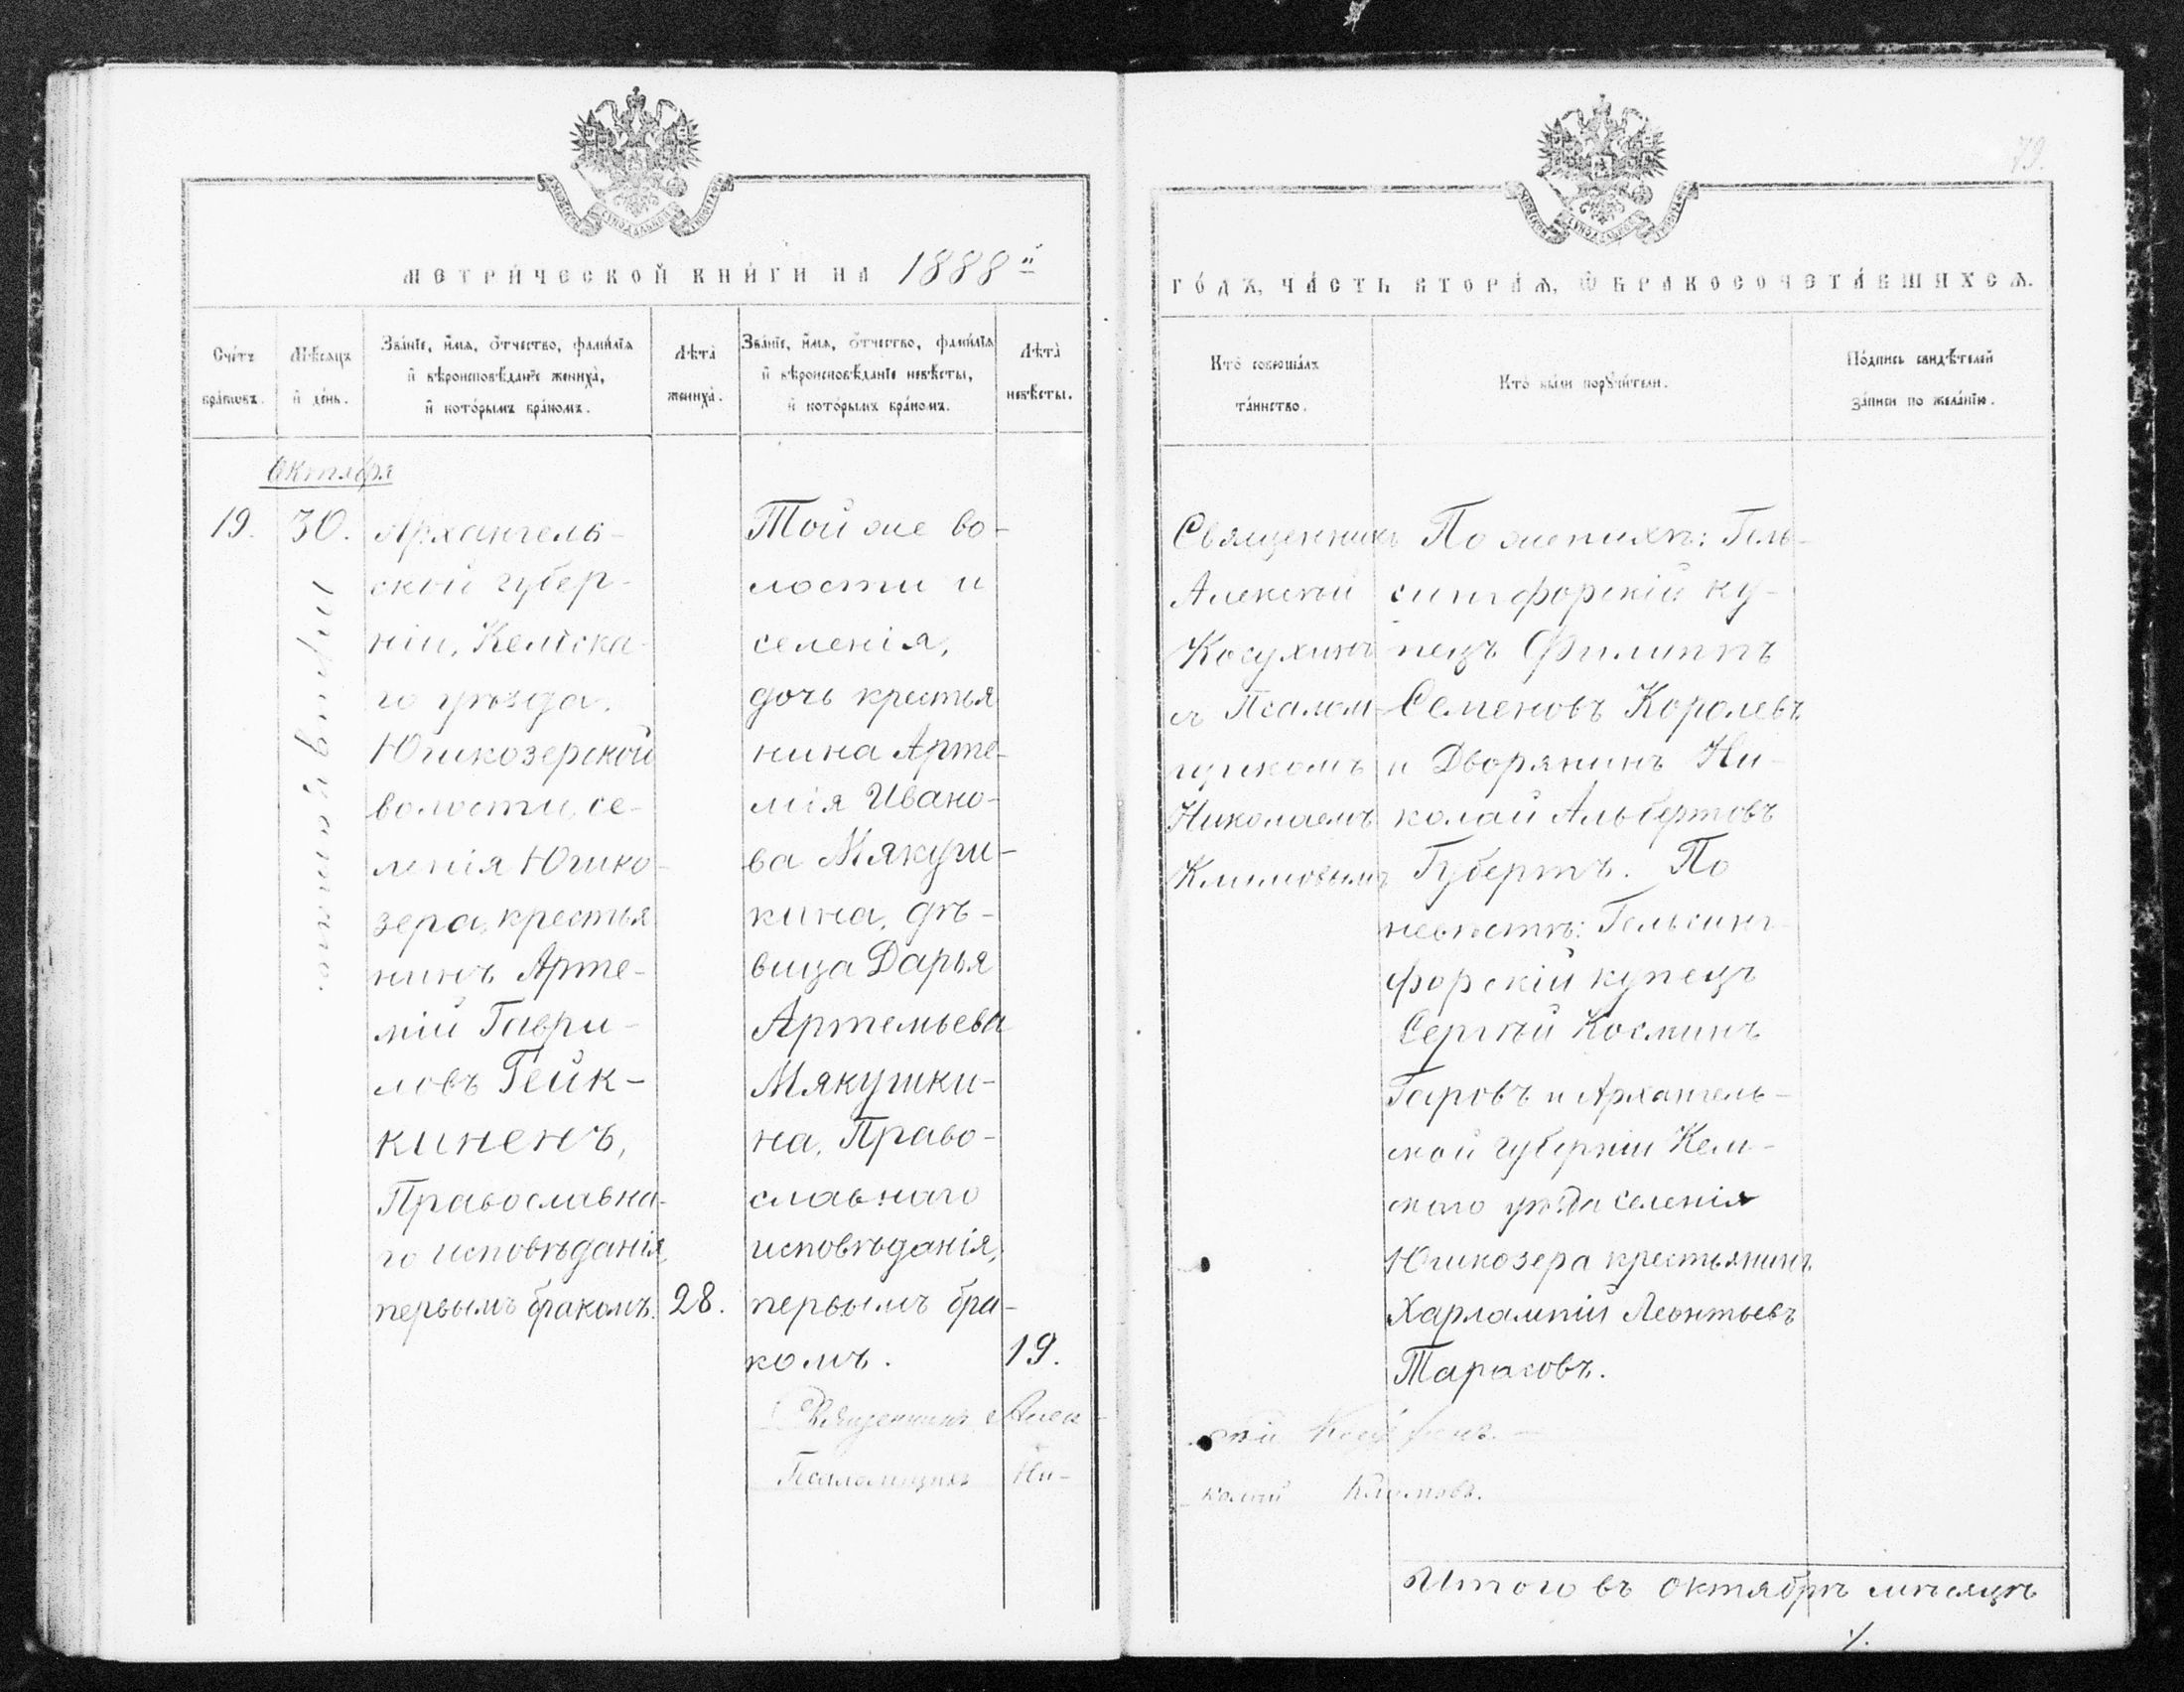 79.
МЕТРИ́ЧЕСКОЙ КНИ́ГИ НА 1888й
ГО́ДЪ, ЧА́СТЬ ВТОРА́Ѧ, Ѡ҆ БРАКОСОЧЕТА́ВШИХСѦ.
Сче́тъ бра́ковъ.
Мѣ́сяцъ и҆ де́нь.
Зва́нїе, и҆́мѧ, ѻ҆́тчество, фами́лїѧ
и҆ вѣроисповѣ́данїе жениха̀,
и҆ кото́рымъ бра́комъ.
Лѣта̀
жениха̀.
Зва́нїе, и҆́мѧ, ѻ҆́тчество, фами́лїѧ
и҆ вѣроисповѣ́данїе невѣ́сты,
и҆ кото́рымъ бра́комъ.
Лѣта̀
невѣ́сты.
Кто̀ соверша́лъ
та́инство.
Кто̀ бы́ли порꙋчи́тели.
По́дпись свидѣ́телей
за́писи по жела́нїю.
Октября
19.
30.
тридцатаго.
Архангель-
ской губер-
ніи, Кемска-
го уѣзда,
Юшкозерской
волости, се-
ленія Юшко-
зера, крестья
нинъ Арте-
мій Гаври-
ловъ Гейк-
киненъ,
Православна-
го исповѣданія,
первымъ бракомъ.
28.
Той же во-
лости и
селенія,
дочь крестья
нина Арте-
мія Ивано-
ва Мякуш-
кина, дѣ-
вица Дарья
Артемьева
Мякушки-
на, Право-
славнаго
исповѣданія,
первымъ бра-
комъ.
19.
Священникъ
Алексѣй
Косухинъ
съ Псалом-
щикомъ
Николаемъ
Климовымъ
По женихѣ: Гель-
сингфорскій ку-
пецъ Филиппъ
Семеновъ Королевъ
и Дворянинъ Ни-
колай Альбертовъ
Губертъ. По
невѣстѣ: Гельсинг-
форскій купецъ
Сергѣй Косминъ
Гаровъ и Архангель-
ской губерніи Кем-
скаго уѣзда селенія
Юшкозера крестьянинъ
Харлампій Леонтьевъ
Тарасовъ.
Священникъ Алек-
сѣй Косухинъ.
Псаломщикъ Ни-
колай Климовъ.
Итого въ Октябрѣ мѣсяцѣ